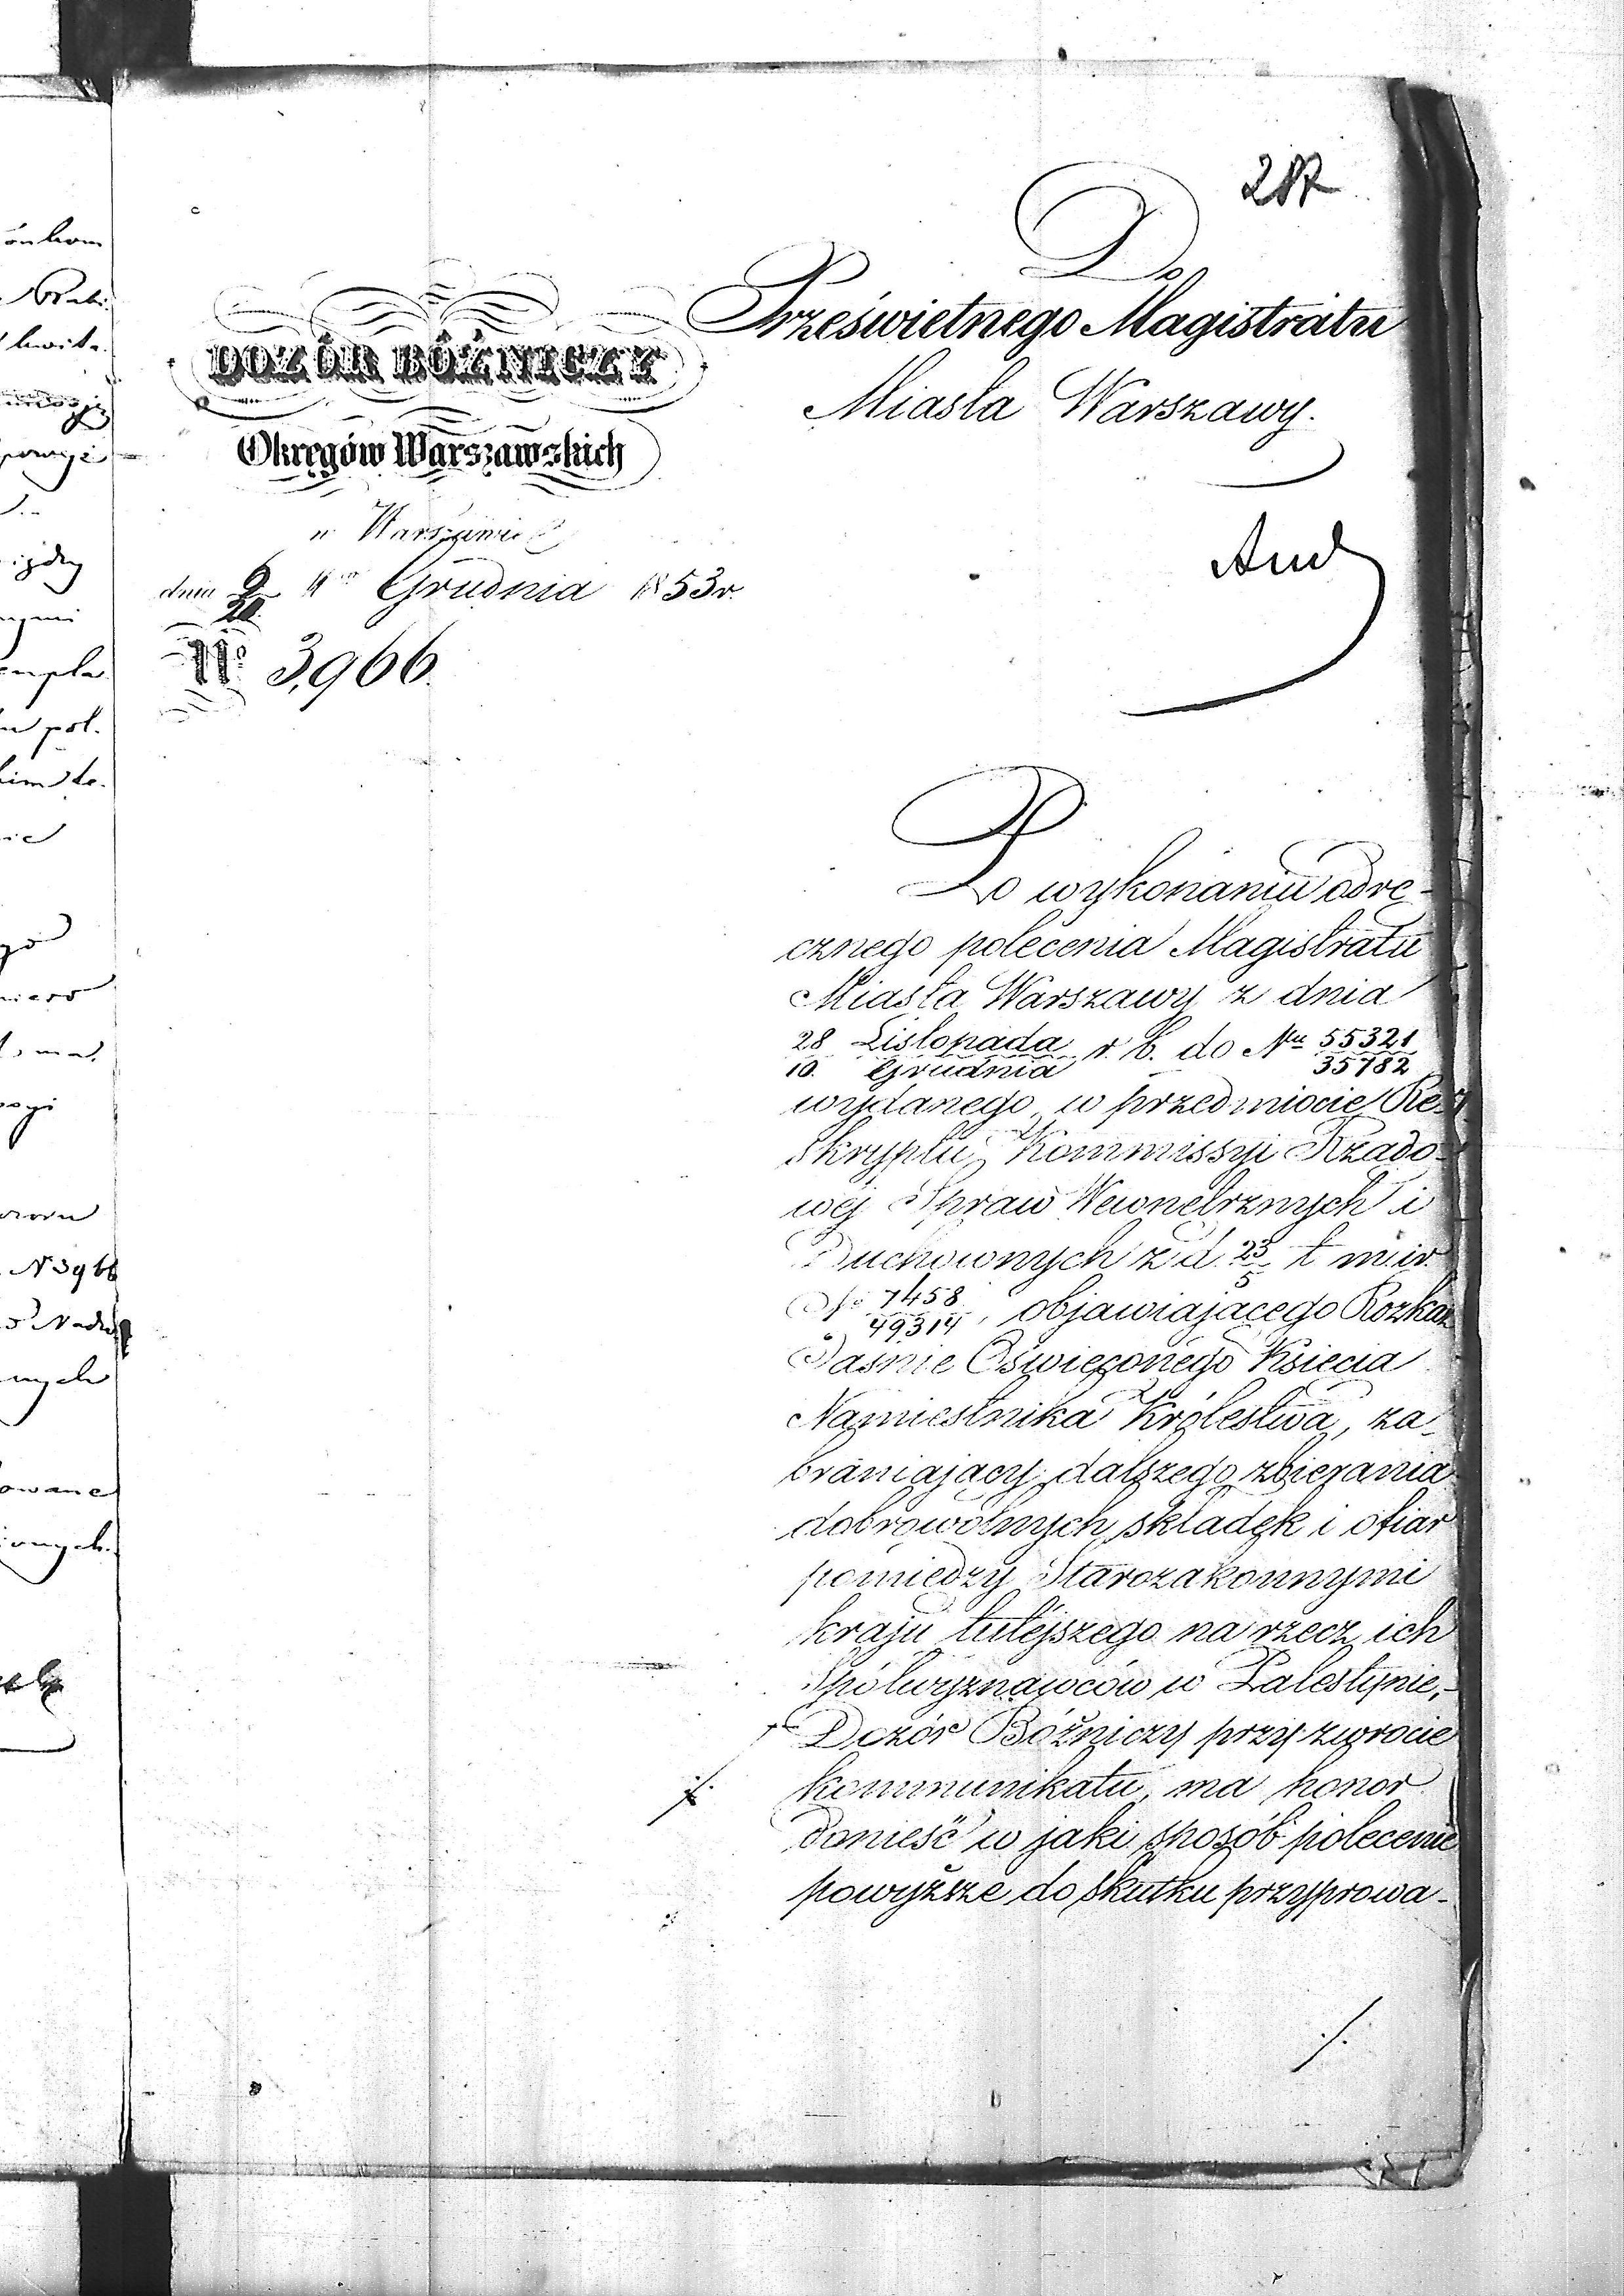 Do
Prześwietnego Magistratu
Miasta Warszawy.
DOZÓR BÓŹNICZY
Okręgów Warszawskich
w Warszawie
dnia 20 Grudnia 1853 r.
No 3,966.
Po wykonaniu odrę-
cznego polecenia Magistratu
Miasta Warszawy z dnia
28 Listopada / 10. Grudnia r. b. do Nu 55321 / 35782
wydanego, w przedmiocie Re-
skryptu Kommissyi Rządo-
wéj Spraw Wewnętrznych i
Duchownych z d. 23/5 t. m. i r.
No 7458 / 49314, objawiającego Rozkaz
Jaśnie Oświęconego Księcia
Namiestnika Królestwa, za-
braniający dalszego zbierania
dobrowolnych składek i ofiar
pomiędzy Starozakonnymi
kraju tutéjszego na rzecz ich
Spółwyznawców w Palestynie,-
Dozór Bóźniczy przy zwrocie
kommunikatu, ma honor
donieść w jaki sposób polecenie
powyższe do skutku przyprowa-
./.
pol.
N 3966